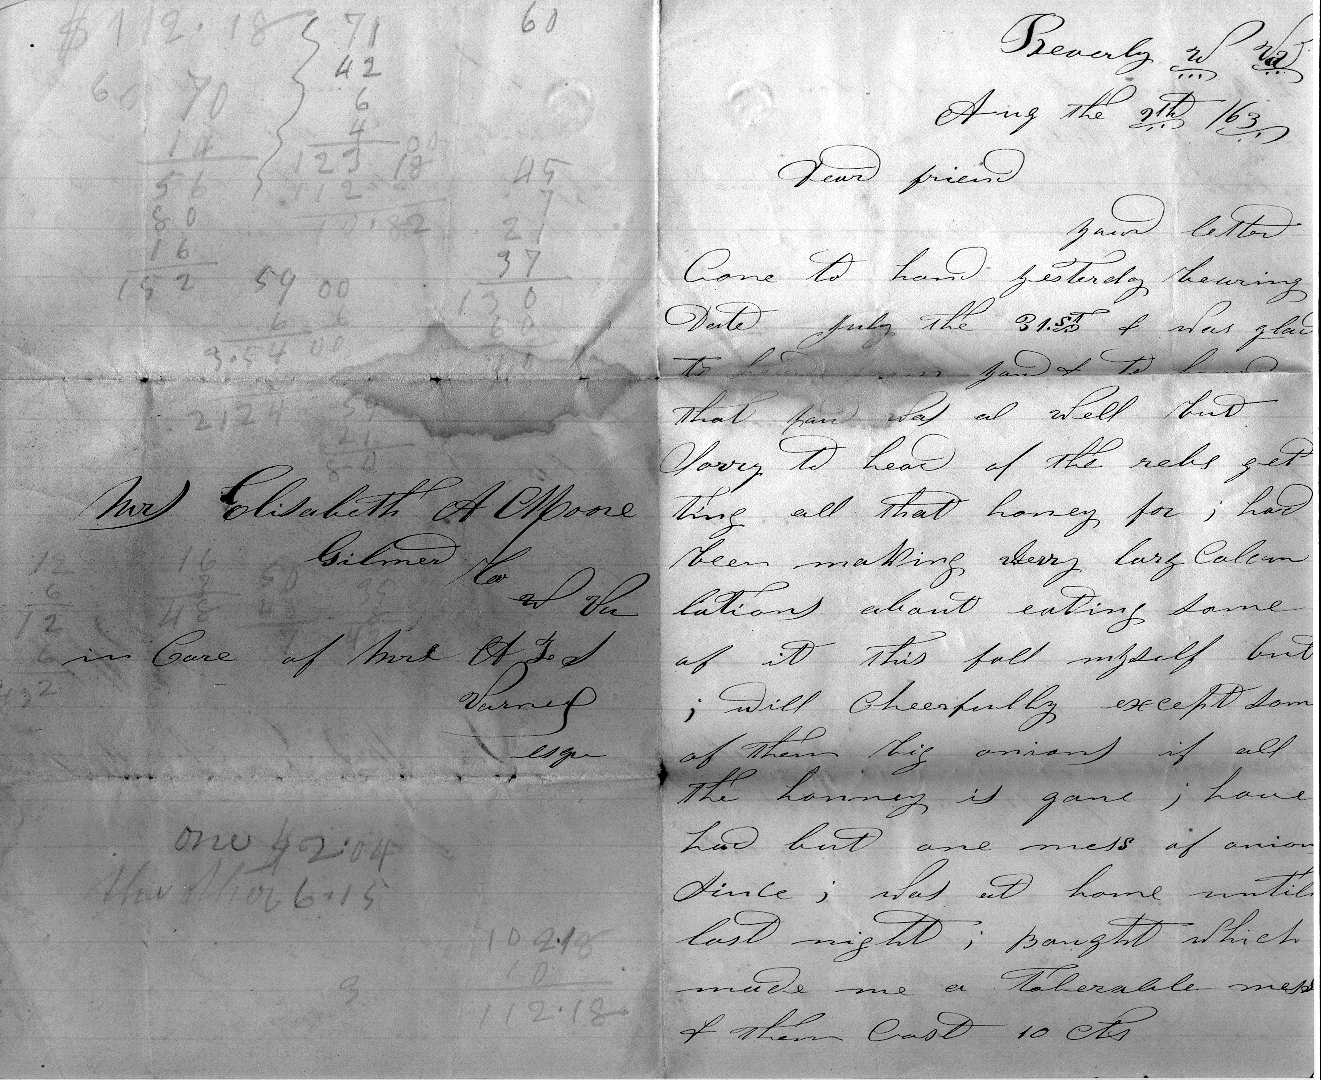 $112.18
71
42
6
4
123 00
112 18
10.82
60
60 70
14
56
80
16
152
59 00
6 6
3.54 00
2124
45
7
21
37
130
60
Mrs Elisabeth A C Moore
Gilmer Co
W Va
in Care of Mrs
Varner
esqr
12
6
12
6
432
16
3
43
50
one $2.04
6.15
102.18
10
112.18
3
Beverly W Va
Aug the 9th /63
Dear friend
your letter
Come to hand yesterday bearing
Date July the 31.st & was glad
to hear from you & to hear
that you was al well but
Sorry to hear of the rebs get
ting all that honey for i had
been making very larg Calcu
lations about eating some
of it this fall myself but
i will Cheerfully except som
of them big onions if all
the honney is gone i have
had but one mess of onion
Since i was at home until
last night i bought which
made me a Tolerable mess
& them Cost 10 cts